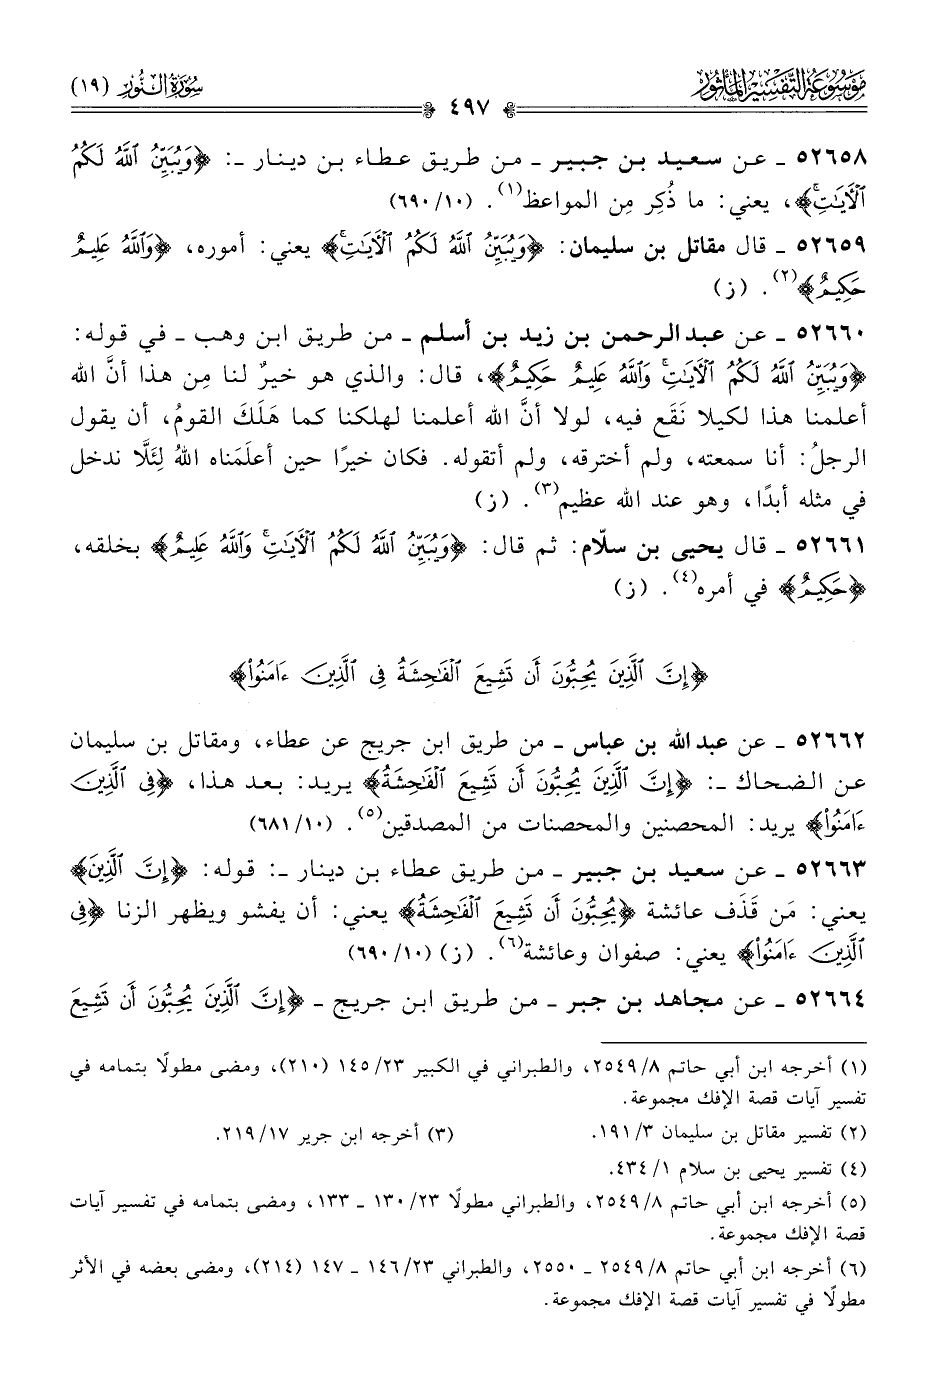 مَوْسُوعَةُ التَّفْسِيرِ المَأْثُورِ
سُورَةُ النُّورِ (١٩)
٤٩٧
٥٢٦٥٨ ـ عن سعيد بن جبير ـ من طريق عطاء بن دينار ـ: ﴿وَيُبَيِّنُ ٱللَّهُ لَكُمُ
ٱلْأٓيَٰتِۚ﴾، يعني: ما ذُكِر مِن المواعظ(١). (٦٩٠/١٠)
٥٢٦٥٩ ـ قال مقاتل بن سليمان: ﴿وَيُبَيِّنُ ٱللَّهُ لَكُمُ ٱلْأٓيَٰتِۚ﴾ يعني: أموره، ﴿وَٱللَّهُ عَلِيمٌ
حَكِيمٌ﴾(٢). (ز)
٥٢٦٦٠ ـ عن عبدالرحمن بن زيد بن أسلم ـ من طريق ابن وهب ـ في قوله:
﴿وَيُبَيِّنُ ٱللَّهُ لَكُمُ ٱلْأٓيَٰتِۚ وَٱللَّهُ عَلِيمٌ حَكِيمٌ﴾، قال: والذي هو خيرٌ لنا مِن هذا أنَّ الله
أعلمنا هذا لكيلا نَقَع فيه، لولا أنَّ الله أعلمنا لهلكنا كما هَلَكَ القومُ، أن يقول
الرجلُ: أنا سمعته، ولم أخترقه، ولم أتقوله. فكان خيرًا حين أعلَمَناه اللهُ لِئَلَّا ندخل
في مثله أبدًا، وهو عند الله عظيم(٣). (ز)
٥٢٦٦١ ـ قال يحيى بن سلّام: ثم قال: ﴿وَيُبَيِّنُ ٱللَّهُ لَكُمُ ٱلْأٓيَٰتِۚ وَٱللَّهُ عَلِيمٌ﴾ بخلقه،
﴿حَكِيمٌ﴾ في أمره(٤). (ز)
﴿إِنَّ ٱلَّذِينَ يُحِبُّونَ أَن تَشِيعَ ٱلْفَٰحِشَةُ فِى ٱلَّذِينَ ءَامَنُوا۟﴾
٥٢٦٦٢ ـ عن عبدالله بن عباس ـ من طريق ابن جريج عن عطاء، ومقاتل بن سليمان
عن الضحاك ـ: ﴿إِنَّ ٱلَّذِينَ يُحِبُّونَ أَن تَشِيعَ ٱلْفَٰحِشَةُ﴾ يريد: بعد هذا، ﴿فِى ٱلَّذِينَ
ءَامَنُوا۟﴾ يريد: المحصنين والمحصنات من المصدقين(٥). (٦٨١/١٠)
٥٢٦٦٣ ـ عن سعيد بن جبير ـ من طريق عطاء بن دينار ـ: قوله: ﴿إِنَّ ٱلَّذِينَ﴾
يعني: مَن قَذَف عائشة ﴿يُحِبُّونَ أَن تَشِيعَ ٱلْفَٰحِشَةُ﴾ يعني: أن يفشو ويظهر الزنا ﴿فِى
ٱلَّذِينَ ءَامَنُوا۟﴾ يعني: صفوان وعائشة(٦). (ز) (٦٩٠/١٠)
٥٢٦٦٤ ـ عن مجاهد بن جبر ـ من طريق ابن جريج ـ ﴿إِنَّ ٱلَّذِينَ يُحِبُّونَ أَن تَشِيعَ
(١) أخرجه ابن أبي حاتم ٢٥٤٩/٨، والطبراني في الكبير ١٤٥/٢٣ (٢١٠)، ومضى مطولًا بتمامه في
تفسير آيات قصة الإفك مجموعة.
(٢) تفسير مقاتل بن سليمان ١٩١/٣.
(٣) أخرجه ابن جرير ٢١٩/١٧.
(٤) تفسير يحيى بن سلام ٤٣٤/١.
(٥) أخرجه ابن أبي حاتم ٢٥٤٩/٨، والطبراني مطولًا ١٣٠/٢٣ ـ ١٣٣، ومضى بتمامه في تفسير آيات
قصة الإفك مجموعة.
(٦) أخرجه ابن أبي حاتم ٢٥٤٩/٨ ـ ٢٥٥٠، والطبراني ١٤٦/٢٣ ـ ١٤٧ (٢١٤)، ومضى بعضه في الأثر
مطولًا في تفسير آيات قصة الإفك مجموعة.